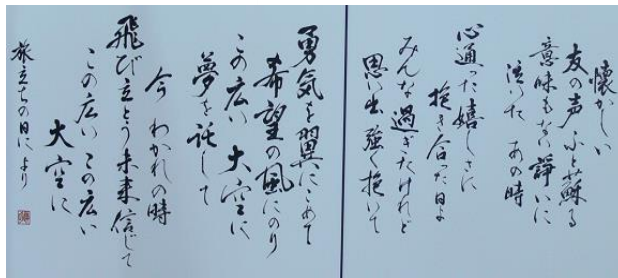 懐かしい
友の声 ふと蘇る
意味もない諍いに
泣いた あの時
心通った嬉しさに
抱き合った日よ
みんな過ぎたけれど
思い出強く抱いて
勇気を翼にこめて
希望の風にのり
この広い 大空に
夢を託して
今 わかれの時
飛び立とう未来信じて
この広い この広い
大空に
旅立ちの日に より